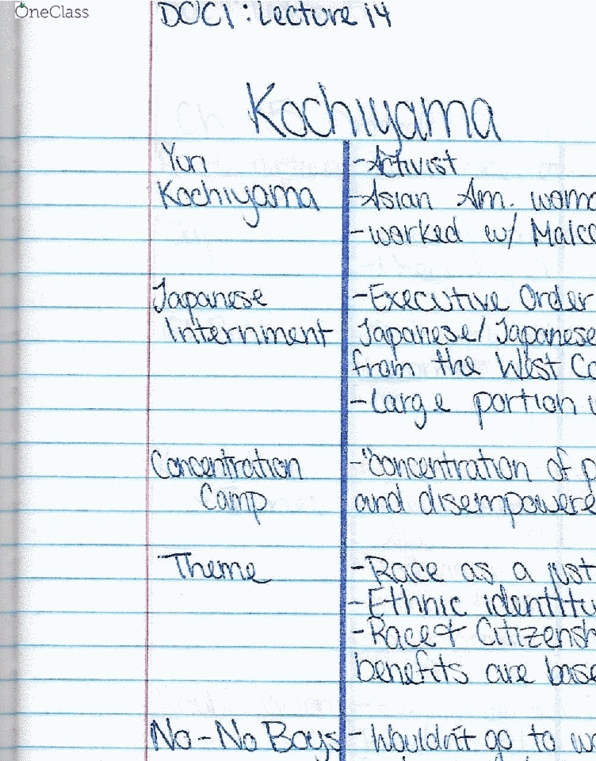 OneClass
DOC1: Lecture 14
Kochiyama
Yuri
Kochiyama
-Activist
-Asian Am.
-worked w/
Japanese
Internment
-Executive Order
Japanese/Japanese
from the West
-Large portion
Concentration
Camp
-"concentration of
and
Theme
-Race as a
-Ethnic
-Race+
benefits are
No-No Boys
-Wouldn't go to